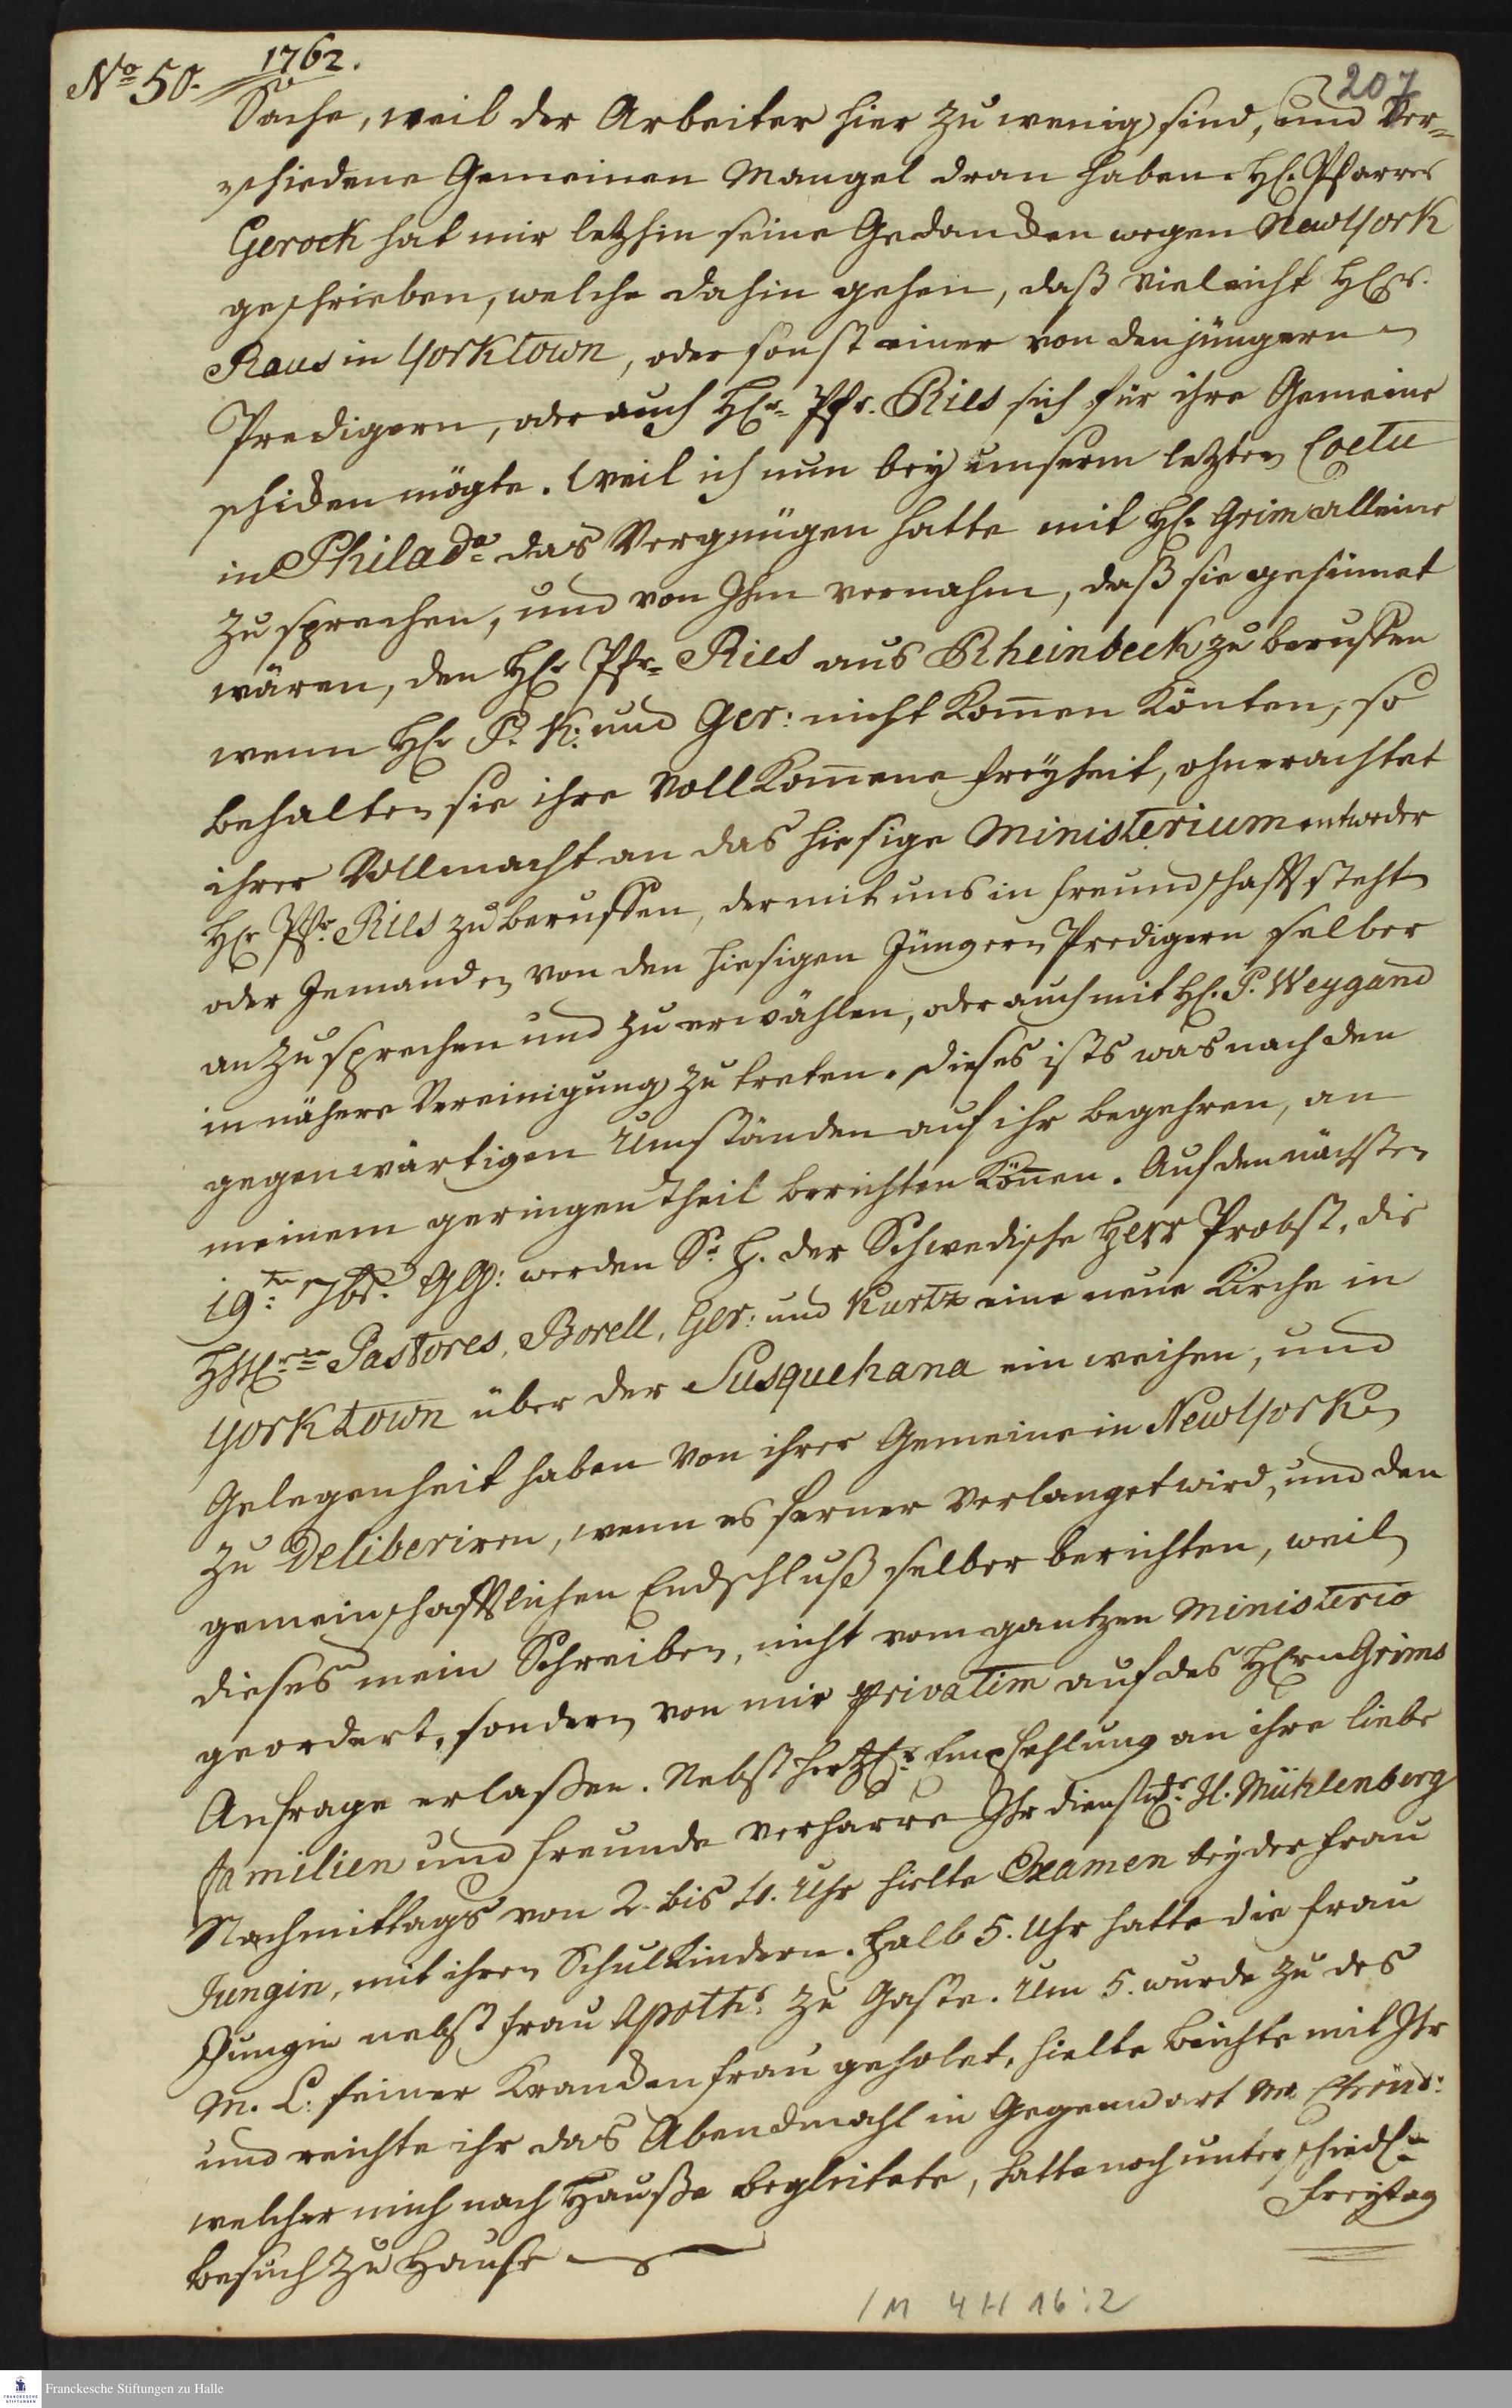 No 50. 1762.
207
Sache, weil der Arbeiter hier zu wenig sind, und Ver=
schiedene Gemeinen Mangel dran haben. H. Pfarrer
Gerock hat mir letzhin seine Gedancken wegen NewYork
geschrieben, welche dahin gehen, daß vieleicht HEr.
Raus in Yorktown, oder sonst einer von den jüngern
Predigern, oder auch HEr Pfr. Ries sich für ihre Gemeine
schicken mögte. Weil ich nun bey unserm letzten Coetu
in Philada das Vergnügen hatte mit H. Grim alleine
zu sprechen, und von Ihm vernahm, daß sie gesinnet
wären, den H. Pfr. Ries aus Rheinbeck zu beruffen
wenn H. P. K: und Ger: nicht komen könten, so
behalten sie ihre Vollkomene freyheit, ohnerachtet
ihrer Vollmacht an das hiesige Ministerium entweder
HEr Pfr. Ries zu beruffen, der mit uns in freundschafft steht
oder Jemanden von den hiesigen Jüngern Predigern selber
anzusprechen und zu erwählen, oder auch mit H. P. Weygand
in nähere Vereinigung zu treten. Dieses ists was nach den
gegenwärtigen Umständen auf ihr begehren, an
meinem geringen Theil berichten können. Auf den nächsten
19ten 7br. GG: werden Sr. H. der Schwedische Herr Probst, die
HHErrn Pastores, Borell, Ger: und Kurtz eine neue Kirche in
Yorktown über der Susquehana ein weihen, und
Gelegenheit haben von ihrer Gemeine in NewYork
zu Deliberiren, wenn es ferner Verlanget wird, und den
gemeinschafftlichen Endschluß selber berichten, weil
dieses mein Schreiben, nicht vom gantzen Ministerio
geordert, sondern von mir privatim auf des HErn Grims
Anfrage erlaßen. Nebst hertzl. Empfehlung an ihre liebe
familien und freunde verharre Ihr dienstw. H. Mühlenberg
Nachmittags von 2. bis 4. Uhr hielte Examen bey der Frau
Jungin, mit ihren Schulkindern. Halb 5. Uhr hatte die Frau
Jungin nebst Frau Apoth: zu Gaste. Um 5. wurde zu des
M. L: seiner Krancken frau geholet, hielte Beichte mit Ihr
und reichte ihr das Abendmahl in Gegenwart Mr.
welcher mich nach Hauße begleitete, hatte noch unterschiedl.
besuch zu Hause
Freytag
1 M 4 H 16 : 2
Franckesche Stiftungen zu Halle